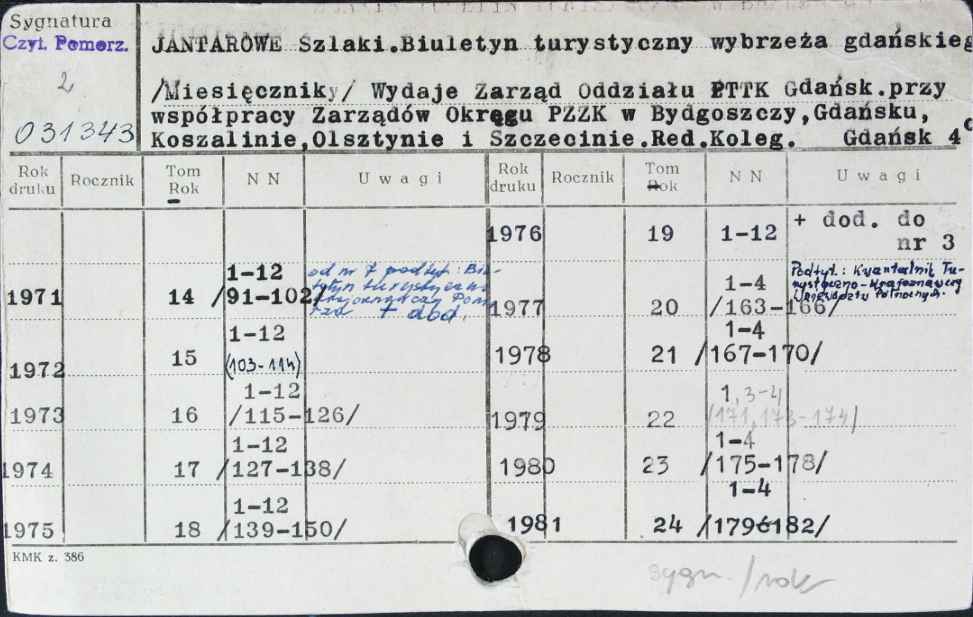 Sygnatura
Czyt. Pomorz.
2
031343
JANTAROWE Szlaki.Biuletyn turystyczny wybrzeża gdańskieg
/Miesięcznik/ Wydaje Zarząd Oddziału PTTK Gdańsk.przy
współpracy Zarządów Okręgu PZZK w Bydgoszczy,Gdańsku,
Koszalinie,Olsztynie i Szczecinie.Red.Koleg. Gdańsk 4°
Rok druku Rocznik Tom Rok NN Uwagi Rok druku Rocznik Tom Rok NN Uwagi
1976 19 1-12 + dod. do nr 3
1971 14 1-12 /91-102/ od nr 7 podtyt.: Biuletyn turystyczno krajoznawczy Pomorza + dod.
1977 20 1-4 /163-166/ Podtyt.: Kwartalnik Turystyczno-Krajoznawczy Województw Północnych.
1972 15 1-12 (103-114)
1978 21 1-4 /167-170/
1973 16 1-12 /115-126/
1979 22 1, 3-4 /171, 173-174/
1974 17 1-12 /127-138/
1980 23 1-4 /175-178/
1975 18 1-12 /139-150/
1981 24 1-4 /1796182/
KMK z. 386
sygn. / rok